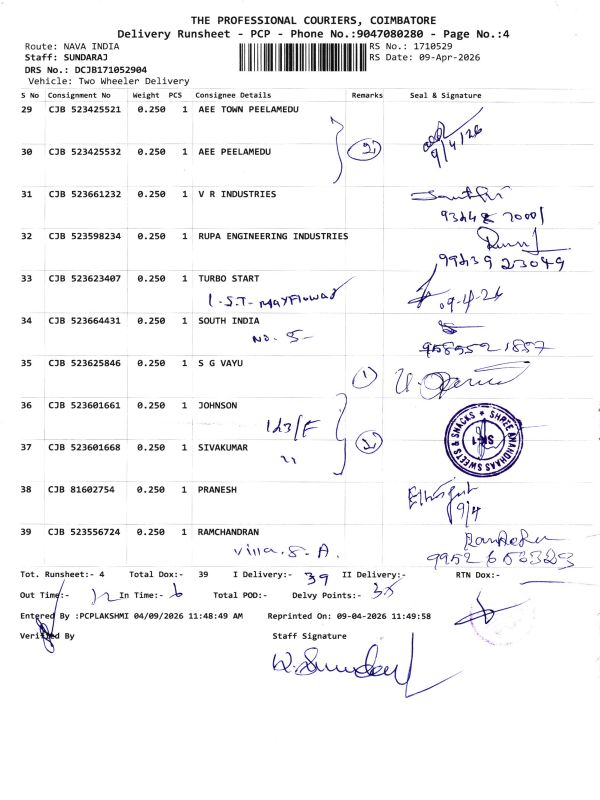 THE PROFESSIONAL COURIERS, COIMBATORE
Delivery Runsheet - PCP - Phone No.:9047080280 - Page No.:4
Route: NAVA INDIA RS No.: 1710529
Staff: SUNDARAJ RS Date: 09-Apr-2026
DRS No.: DCJB171052904
Vehicle: Two Wheeler Delivery
S No Consignment No Weight PCS Consignee Details Remarks Seal & Signature
29 CJB 523425521 0.250 1 AEE TOWN PEELAMEDU
9/4/26
30 CJB 523425532 0.250 1 AEE PEELAMEDU 2
31 CJB 523661232 0.250 1 V R INDUSTRIES
32 CJB 523598234 0.250 1 RUPA ENGINEERING INDUSTRIES
99439 23049
33 CJB 523623407 0.250 1 TURBO START
09-4-26
34 CJB 523664431 0.250 1 SOUTH INDIA
NO. 5-
35 CJB 523625846 0.250 1 S G VAYU
1
36 CJB 523601661 0.250 1 JOHNSON
SHREE ANANDHAAS SWEETS & SNACKS
SK-1
37 CJB 523601668 0.250 1 SIVAKUMAR 2
"
38 CJB 81602754 0.250 1 PRANESH
9/4
39 CJB 523556724 0.250 1 RAMCHANDRAN
Villa. 8-A.
Tot. Runsheet:- 4 Total Dox:- 39 I Delivery:- 39 II Delivery:- RTN Dox:-
Out Time:- 12 In Time:- 6 Total POD:- Delvy Points:-
Entered By :PCPLAKSHMI 04/09/2026 11:48:49 AM Reprinted On: 09-04-2026 11:49:58
Verified By Staff Signature